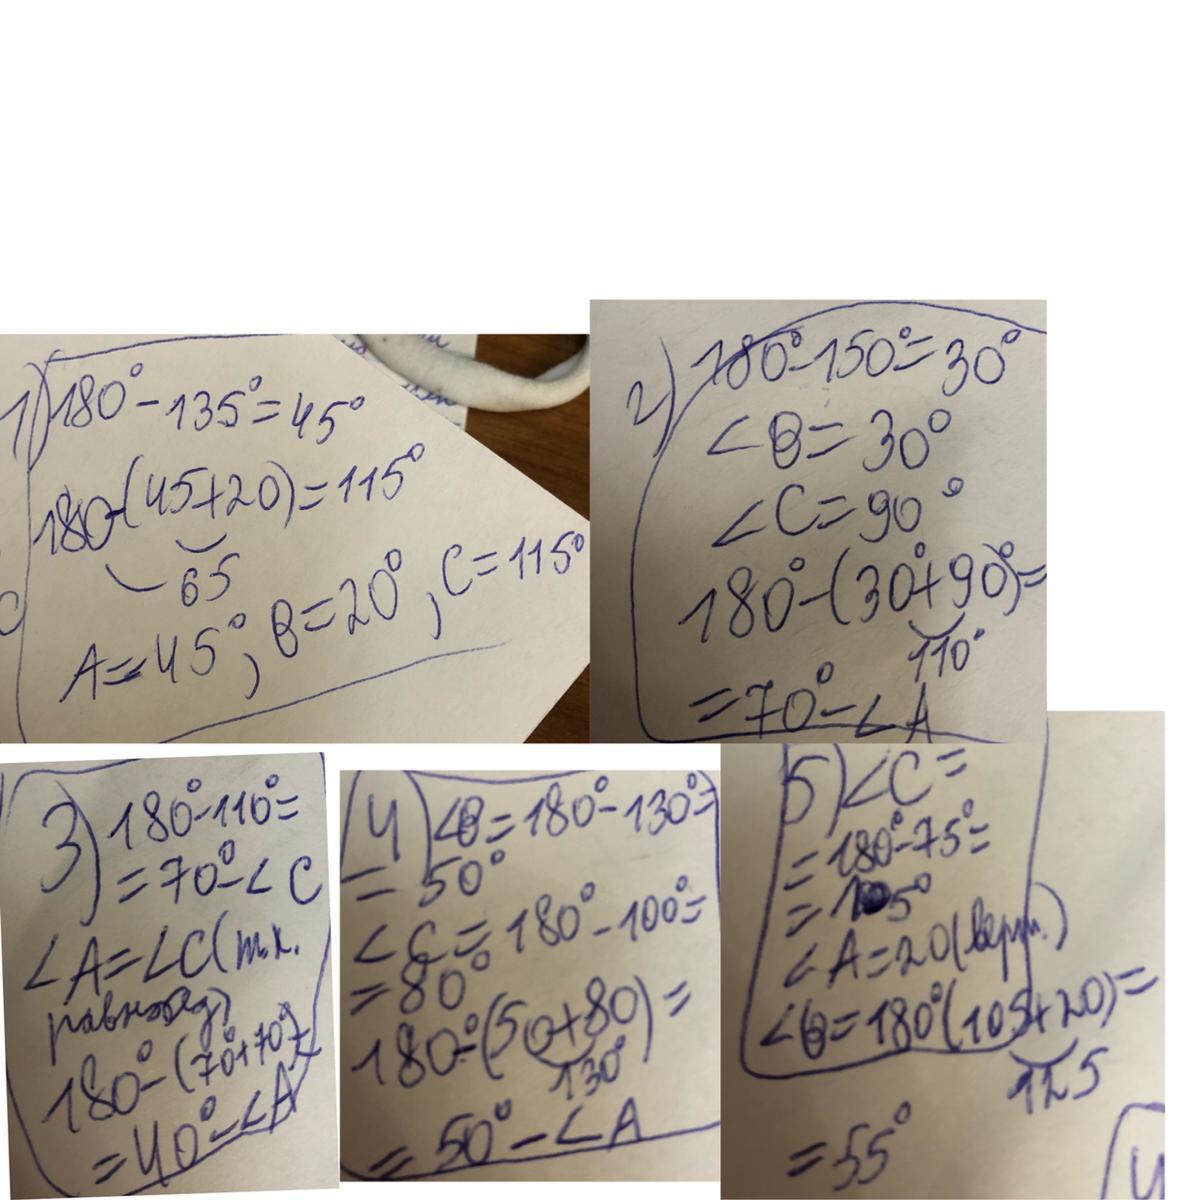 1) 180°-135°=45°
180-(45+20)=115°
65
A=45°, B=20°, C=115°
2) 180°-150°=30°
∠B=30°
∠C=90°
180°-(30°+90)°=
110°
=70°-∠A
3) 180°-110°=
=70°-∠C
∠A=∠C(т.к.
равнобед)
180°-(70°+70°)=
=40°-∠A
4) ∠B=180°-130°=
=50°
∠C=180°-100°=
=80°
180°-(50+80)=
130°
=50°-∠A
5) ∠C=
=180°-75°=
=105°
∠A=20(верт.)
∠B=180°(105+20)=
125
=55°